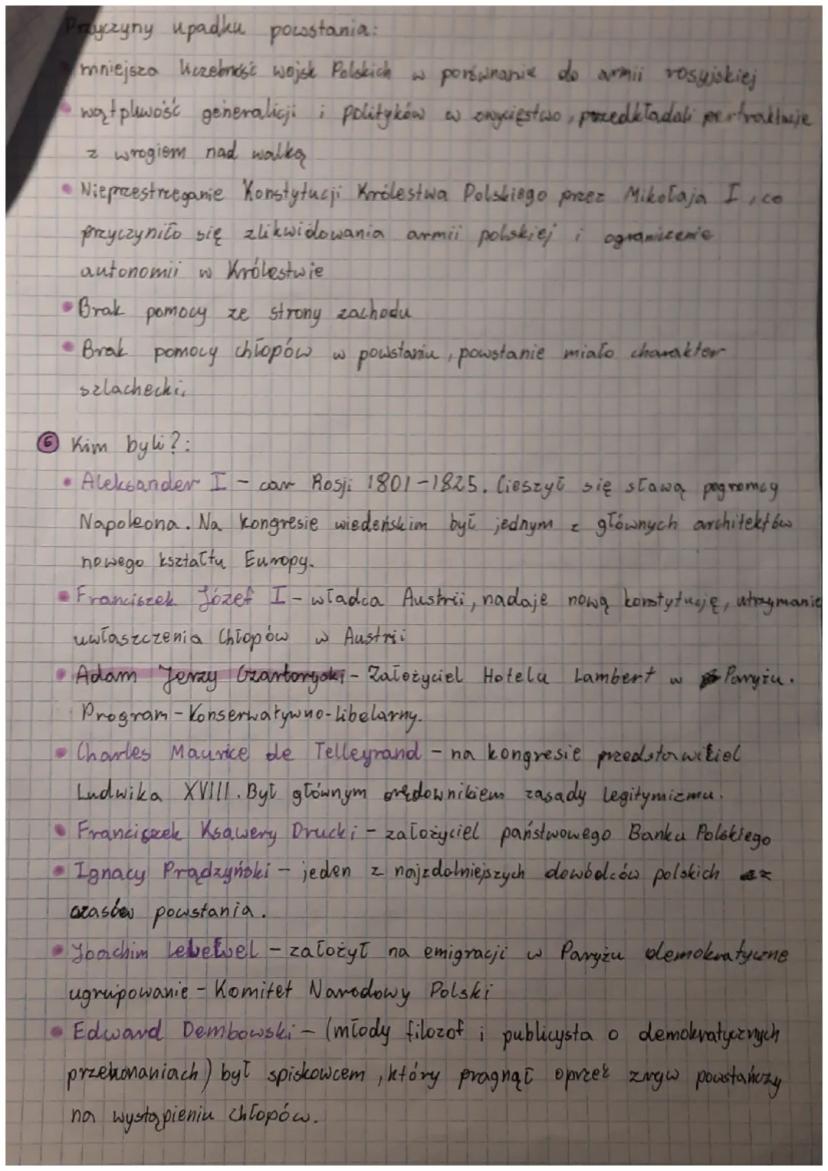 Przyczyny upadku powstania:
mniejsza liczebność wojsk Polskich w porównanie do armii rosyjskiej
• wątpliwość generalicji i polityków w zwycięstwo, przedkładali pertraktacje
z wrogiem nad walką
• Nieprzestrzeganie Konstytucji Królestwa Polskiego przez Mikołaja I, co
przyczyniło się zlikwidowania armii polskiej i ograniczenie
autonomii w Królestwie
• Brak pomocy ze strony zachodu
• Brak pomocy chłopów w powstaniu, powstanie miało charakter
szlachecki.
6 Kim byli?:
• Aleksander I - car Rosji 1801-1825. Cieszył się sławą pogromcy
Napoleona. Na kongresie wiedeńskim był jednym z głównych architektów
nowego kształtu Europy.
• Franciszek Józef I - władca Austrii, nadaje nową konstytucję, utrzymanie
uwłaszczenia chłopów w Austrii
• Adam Jerzy Czartoryski - Założyciel Hotelu Lambert w Paryżu.
Program - Konserwatywno-libelarny.
• Charles Maurice de Telleyrand - na kongresie przedstawiciel
Ludwika XVIII. Był głównym orędownikiem zasady legitymizmu.
• Franciszek Ksawery Drucki - założyciel państwowego Banku Polskiego
• Ignacy Prądzyński - jeden z najzdolniejszych dowódców polskich
czasów powstania.
• Joachim Lelewel - założył na emigracji w Paryżu demokratyczne
ugrupowanie - Komitet Narodowy Polski
• Edward Dembowski - (młody filozof i publicysta o demokratycznych
przekonaniach) był spiskowcem, który pragnął oprzeć zryw powstańczy
na wystąpieniu chłopów.